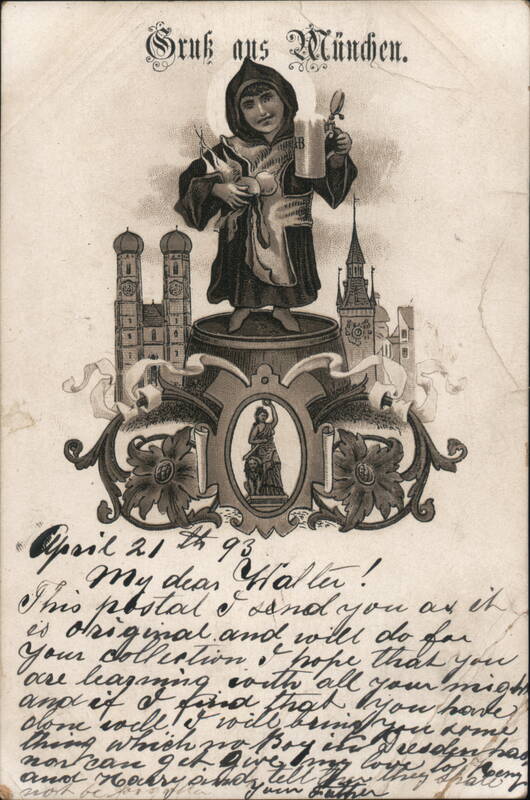 Gruß aus München.
HB
April 21th 93
My dear Walter!
This postal I send you as it
is original and will do for
your collection I hope that you
are learning with all your might
and if I find that you have
done well. I will bring you some
thing which no Boy in Dresden has
nor can get Give my love to Henry
and Harry and tell them they shall
not be forgotten your Father